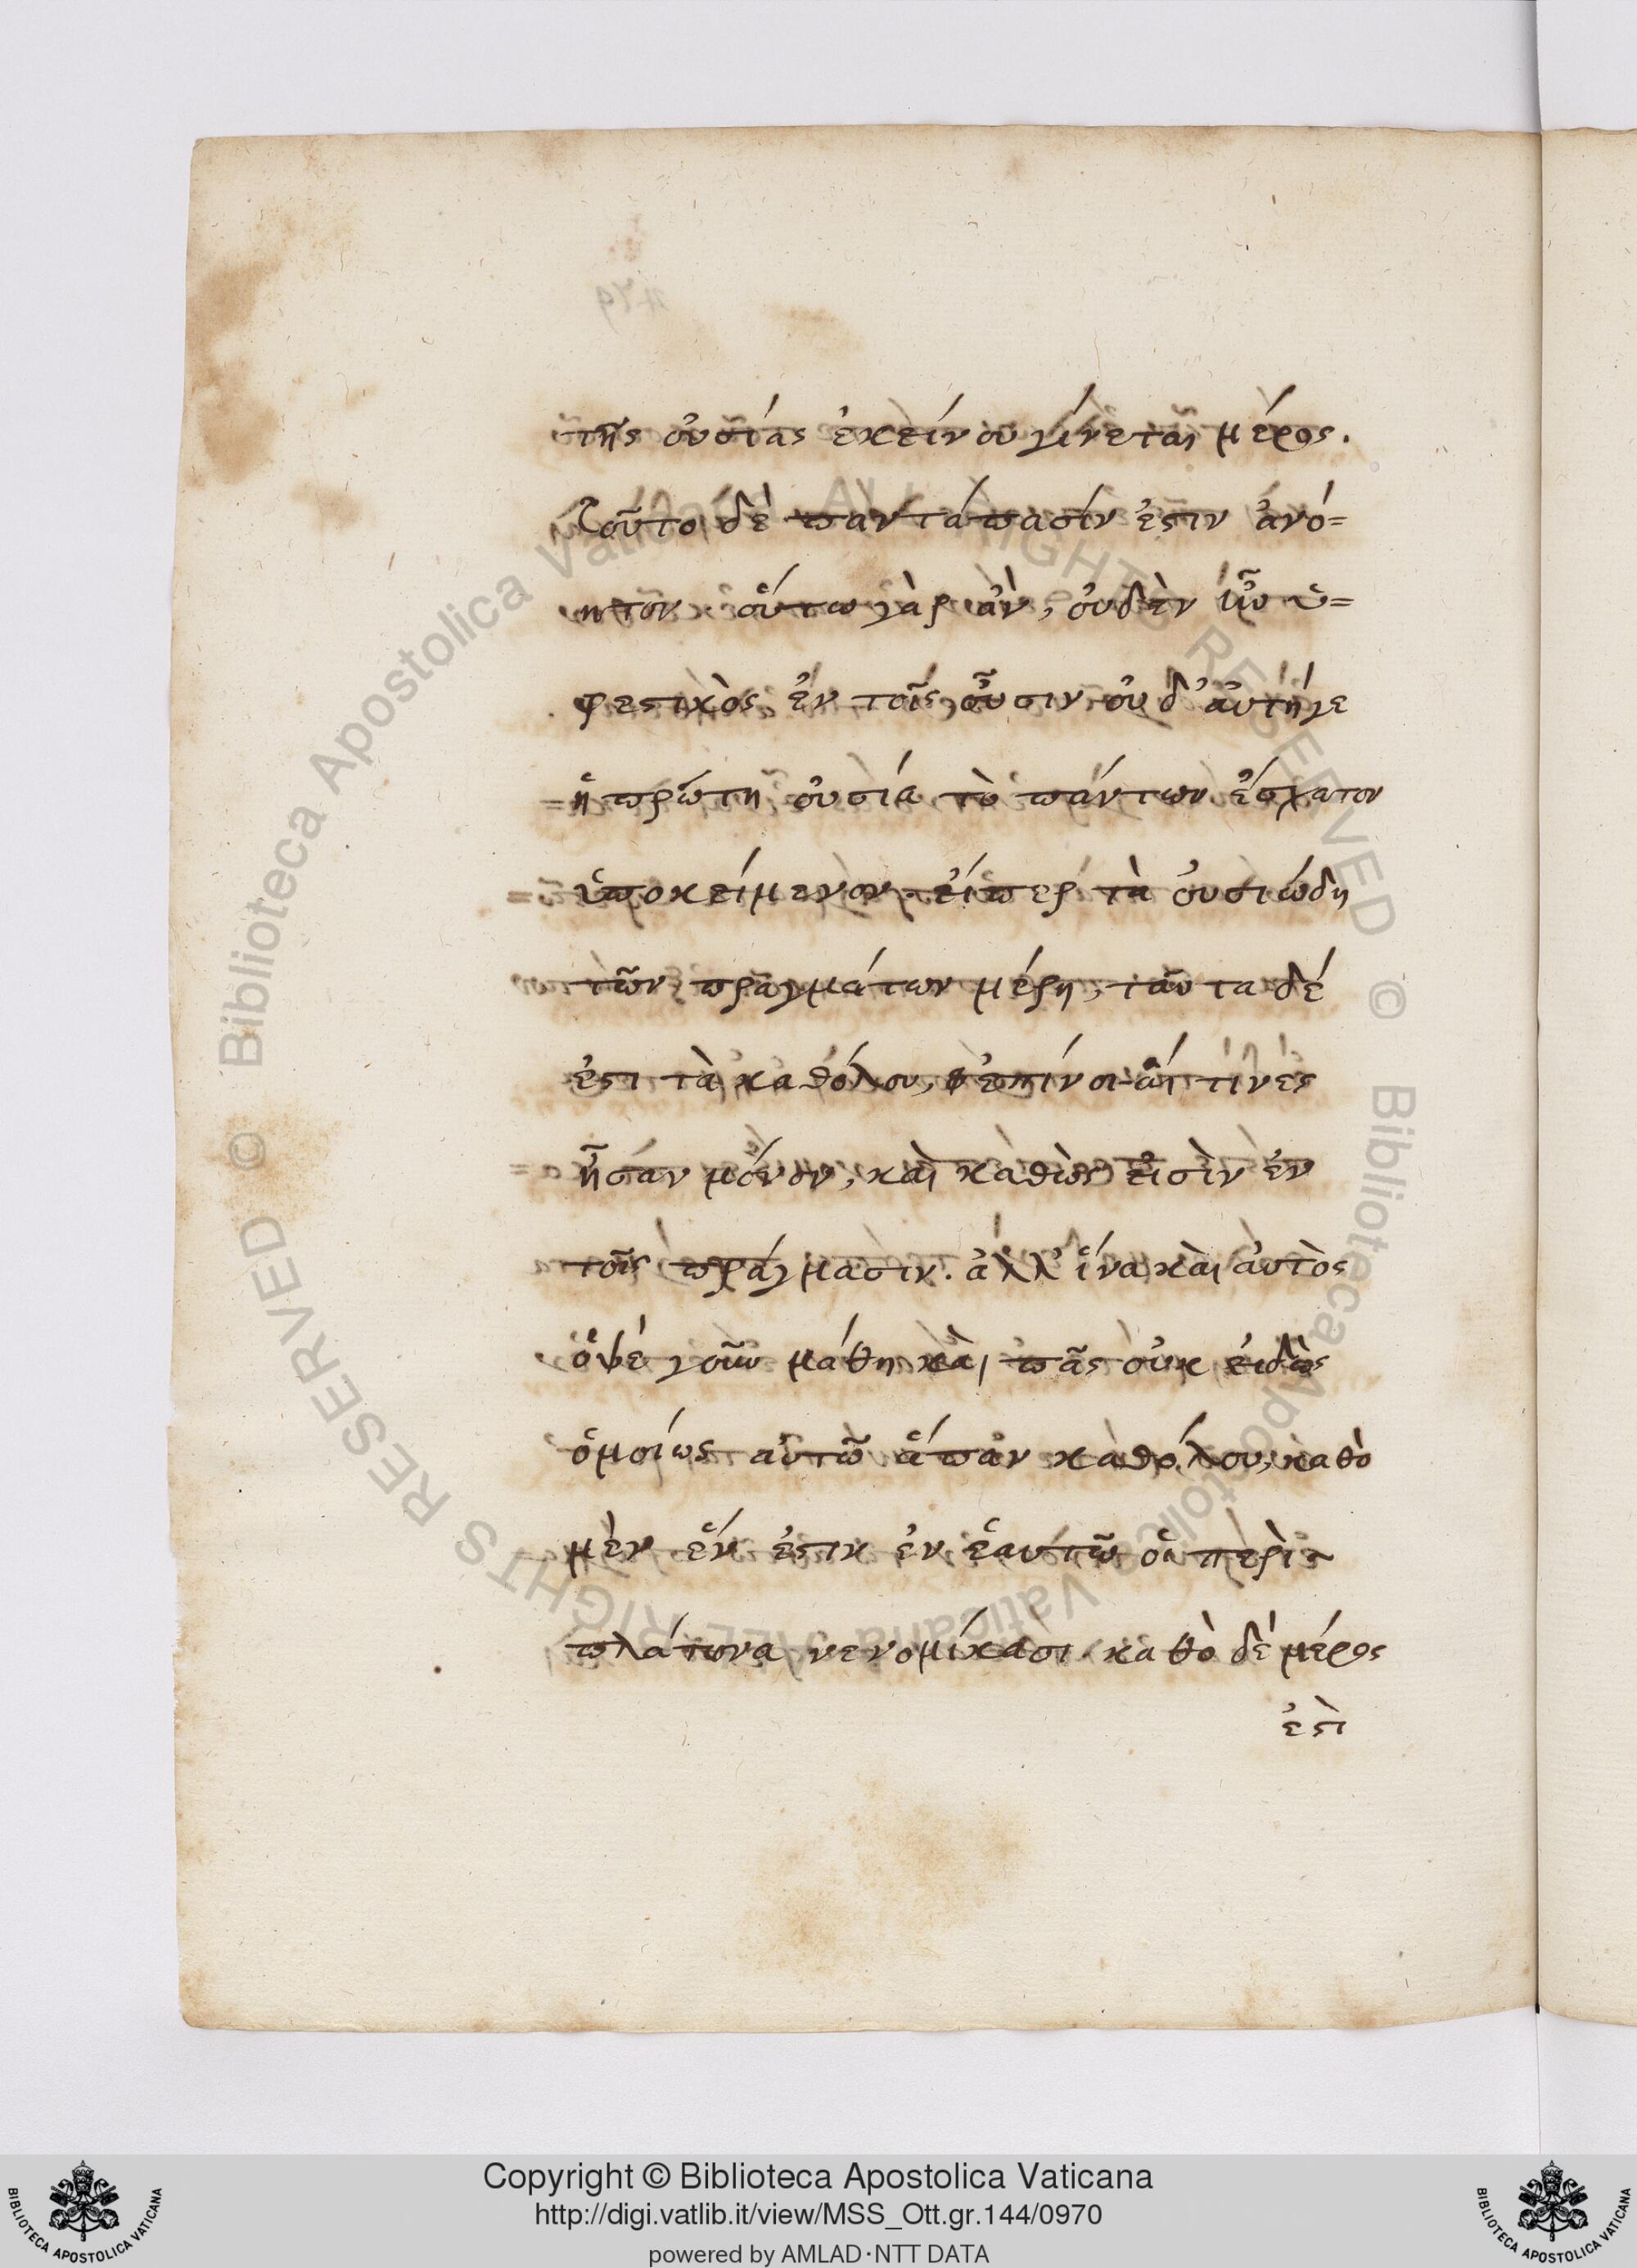 τῆς οὐσίας ἐκείνου γίνεται μέρος.
τοῦτο δὲ παντάπασίν ἐστιν ἀνό=
ητον· οὕτω γὰρ ἂν, οὐδὲν ἦν ὑ=
φεστικὸς ἐν τοῖς οὖσιν οὐδ' αὐτή γε
ἡ πρώτη οὐσία τὸ πάντων ἔσχατον
ὑποκείμενον. εἴπερ τὰ οὐσιώδη
τῶν πραγμάτων μέρη, ταῦτα δέ
ἐστι τὰ καθόλου, ἐπίνοιαί τινές
ἦσαν μόνον, καὶ καθὼς εἰσὶν ἐν
τοῖς πράγμασιν. ἀλλ' ἵνα καὶ αὐτὸς
ὀψέ γουν μάθῃ καὶ πᾶς οὐκ εἰδὼς
ὁμοίως αὐτῷ ἅπαν καθόλου, καθὸ
μὲν ἕν ἐστιν ἐν ἑαυτῷ οἱ περὶ
πλάτωνα νενομίκασι. καθὸ δὲ μέρος
ἐστὶ
Copyright © Biblioteca Apostolica Vaticana
http://digi.vatlib.it/view/MSS_Ott.gr.144/0970
powered by AMLAD·NTT DATA
BIBLIOTECA APOSTOLICA VATICANA
BIBLIOTECA APOSTOLICA VATICANA
© Biblioteca Apostolica Vaticana ALL RIGHTS RESERVED
© Biblioteca Apostolica Vaticana ALL RIGHTS RESERVED